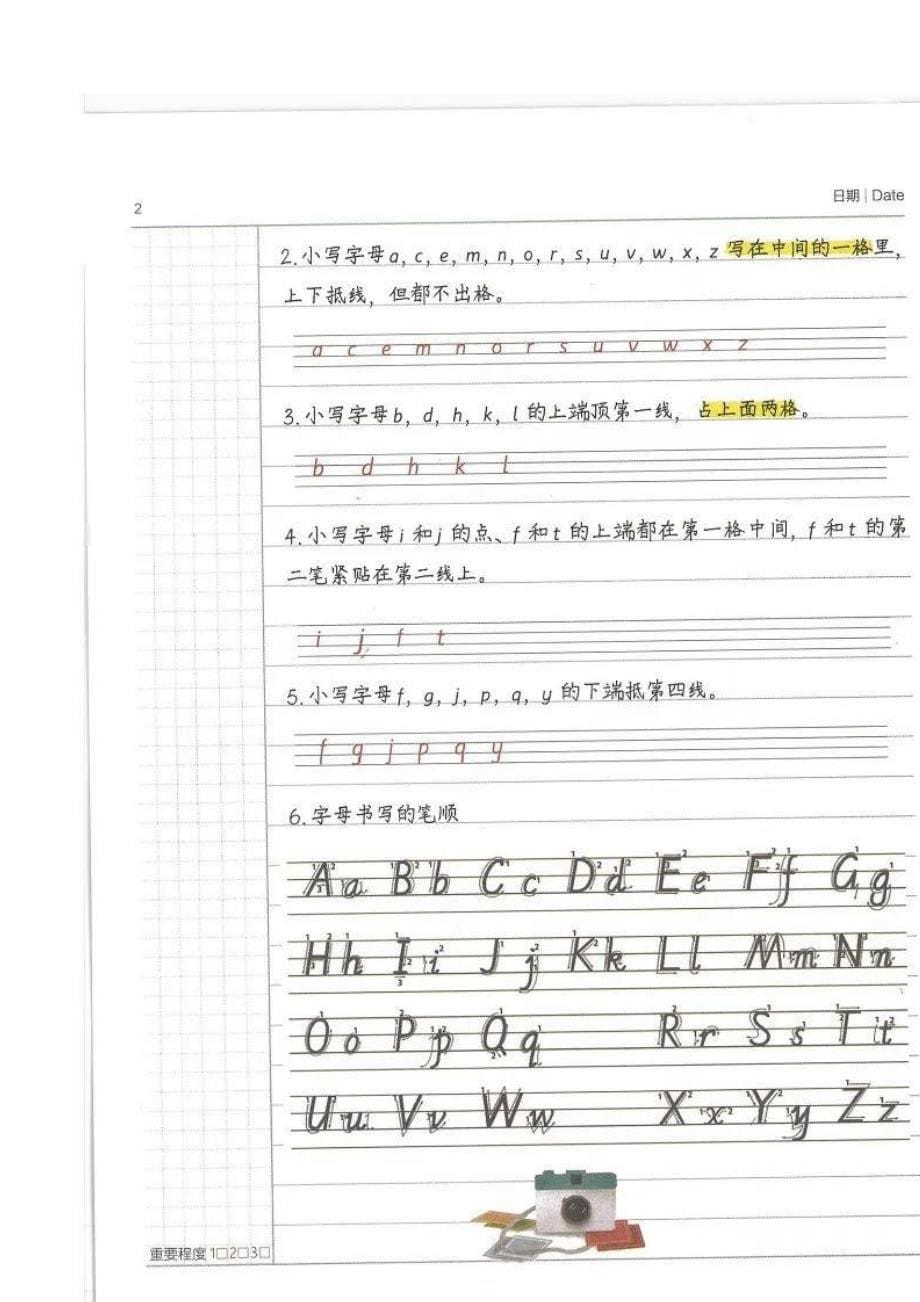 2
日期 | Date
2.小写字母a, c, e, m, n, o, r, s, u, v, w, x, z 写在中间的一格里,
上下抵线，但都不出格。
a c e m n o r s u v w x z
3.小写字母b, d, h, k, l 的上端顶第一线，占上面两格。
b d h k l
4.小写字母i 和j 的点、f 和t 的上端都在第一格中间, f 和t 的第
二笔紧贴在第二线上。
i j f t
5.小写字母f, g, j, p, q, y 的下端抵第四线。
f g j p q y
6.字母书写的笔顺
Aa Bb Cc Dd Ee Ff Gg
Hh Ii Jj Kk Ll Mm Nn
Oo Pp Qq Rr Ss Tt
Uu Vv Ww Xx Yy Zz
重要程度 1□2□3□